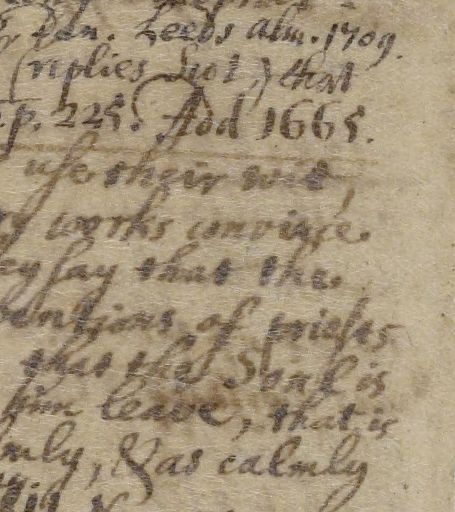 Dan. Leeds alm. 1709.
(replies Scot,) that
p. 225. Add 1665.
use their wit,
works convince.
ey say that the
ventions of priests
that the Soul is
him leave, that is
mly, & as calmly